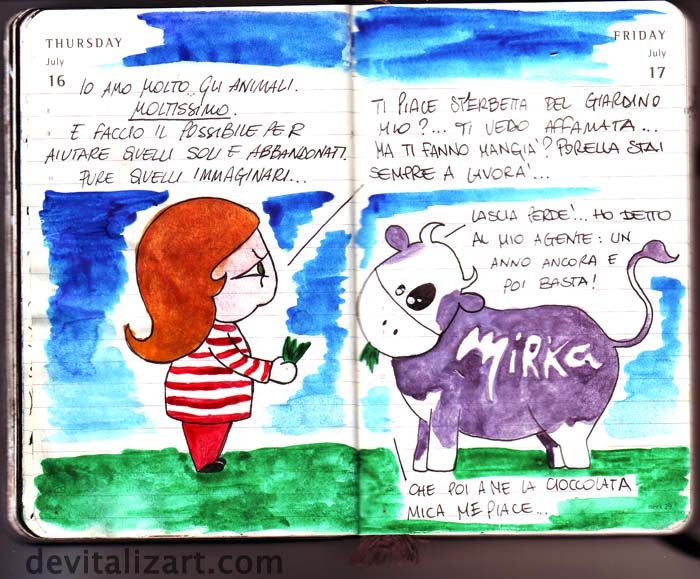 THURSDAY
July
16
IO AMO MOLTO GLI ANIMALI.
MOLTISSIMO.
E FACCIO IL POSSIBILE PER
AIUTARE QUELLI SOLI E ABBANDONATI.
PURE QUELLI IMMAGINARI...
FRIDAY
July
17
TI PIACE ST'ERBETTA DEL GIARDINO
MIO?... TI VEDO AFFAMATA...
MA TI FANNO MANGIA'? PORELLA STAI
SEMPRE A LAVORA'...
LASCIA PERDE'... HO DETTO
AL MIO AGENTE: UN
ANNO ANCORA E
POI BASTA!
MIRKA
CHE POI A ME LA CIOCCOLATA
MICA ME PIACE...
devitalizart.com